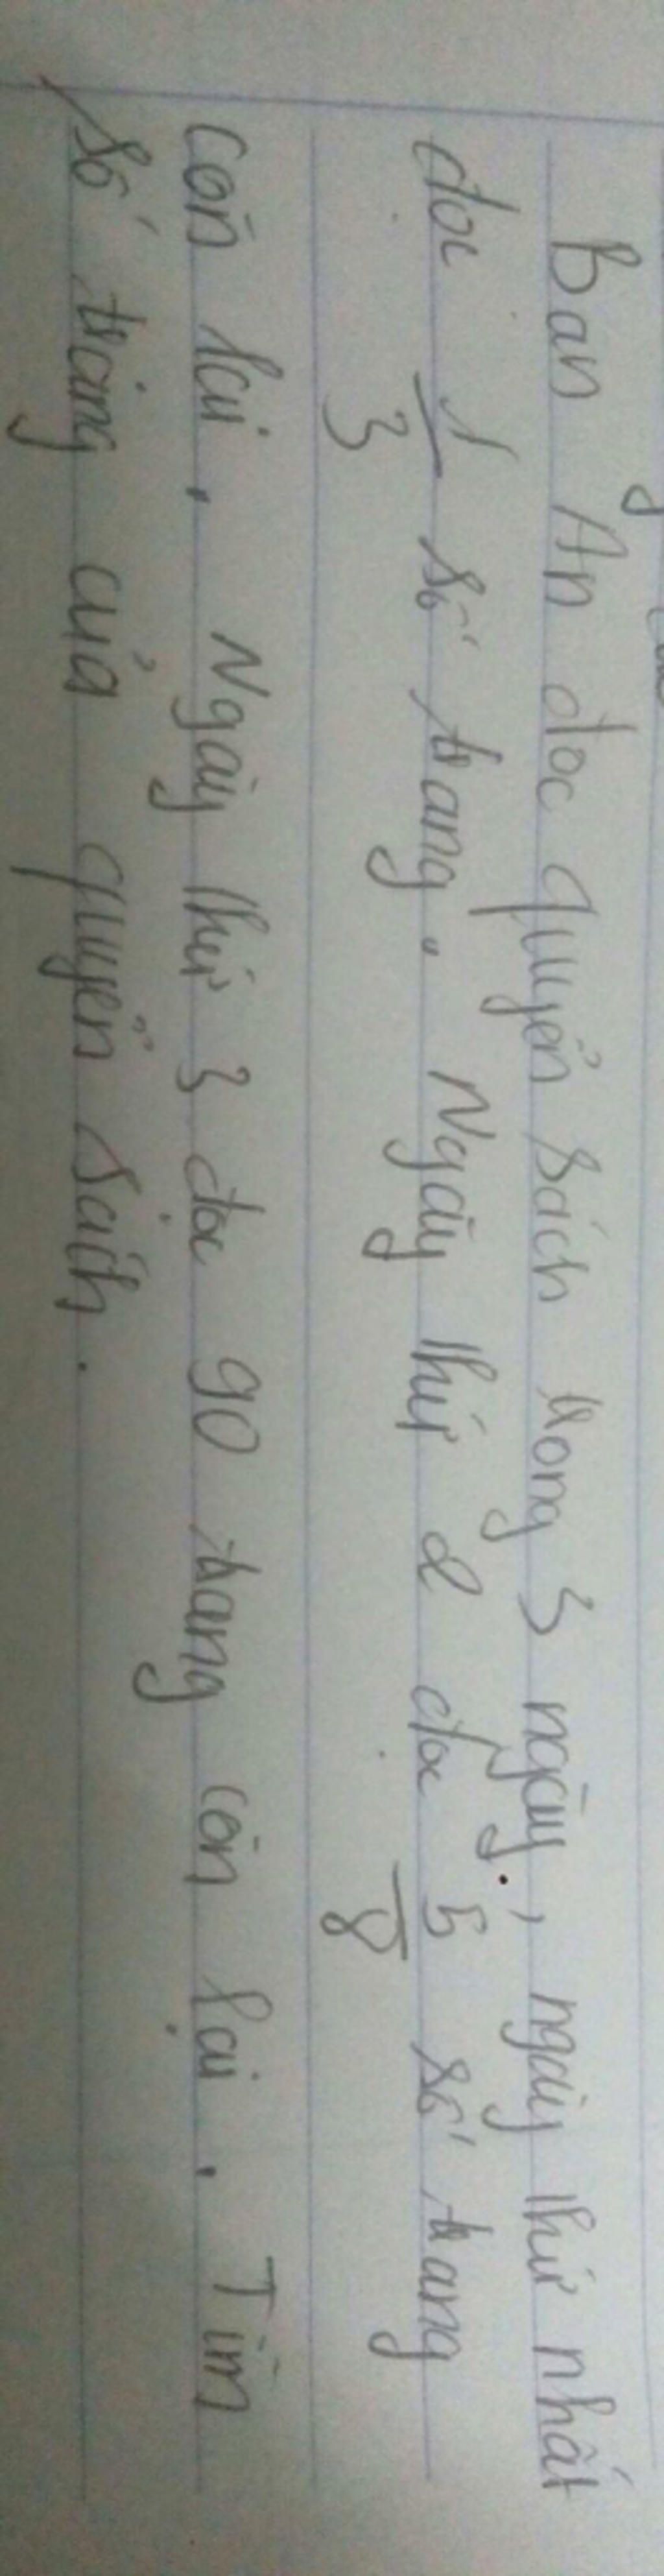 Bạn An đọc quyển sách trong 3 ngày, ngày thứ nhất
đọc 1/3 số trang. Ngày thứ 2 đọc 5/8 số trang
còn lại. Ngày thứ 3 đọc 90 trang còn lại. Tìm
số trang của quyển sách.